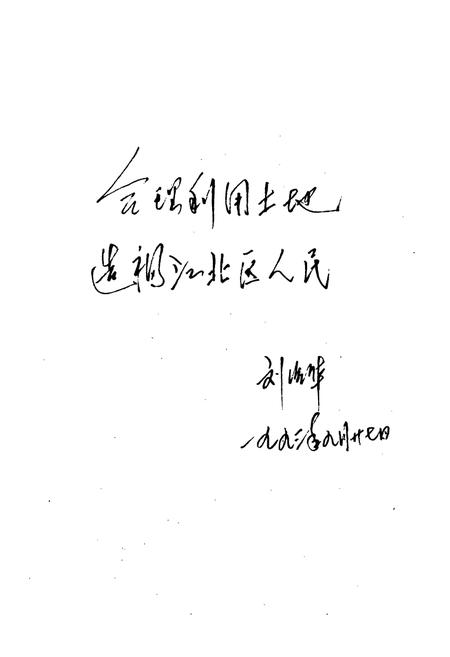 合理利用土地
造福江北区人民
刘治华
一九九三年九月廿七日